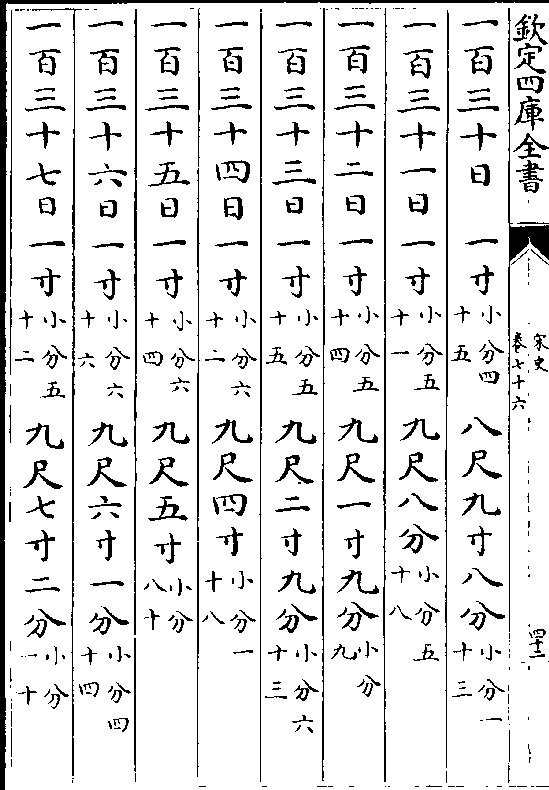 欽定四庫全書
宋史
卷七十六
四十二
一百三十日 一寸小分四十五 八尺九寸八分小分一十三
一百三十一日一寸小分五十一 九尺八分小分五十八
一百三十二日一寸小分五十四 九尺一寸九分小分九
一百三十三日一寸小分五十五 九尺二寸九分小分六十三
一百三十四日一寸小分六十二 九尺四寸小分一十八
一百三十五日一寸小分六十四 九尺五寸小分八十
一百三十六日一寸小分六十六 九尺六寸一分小分四十四
一百三十七日一寸小分五十二 九尺七寸二分小分一十